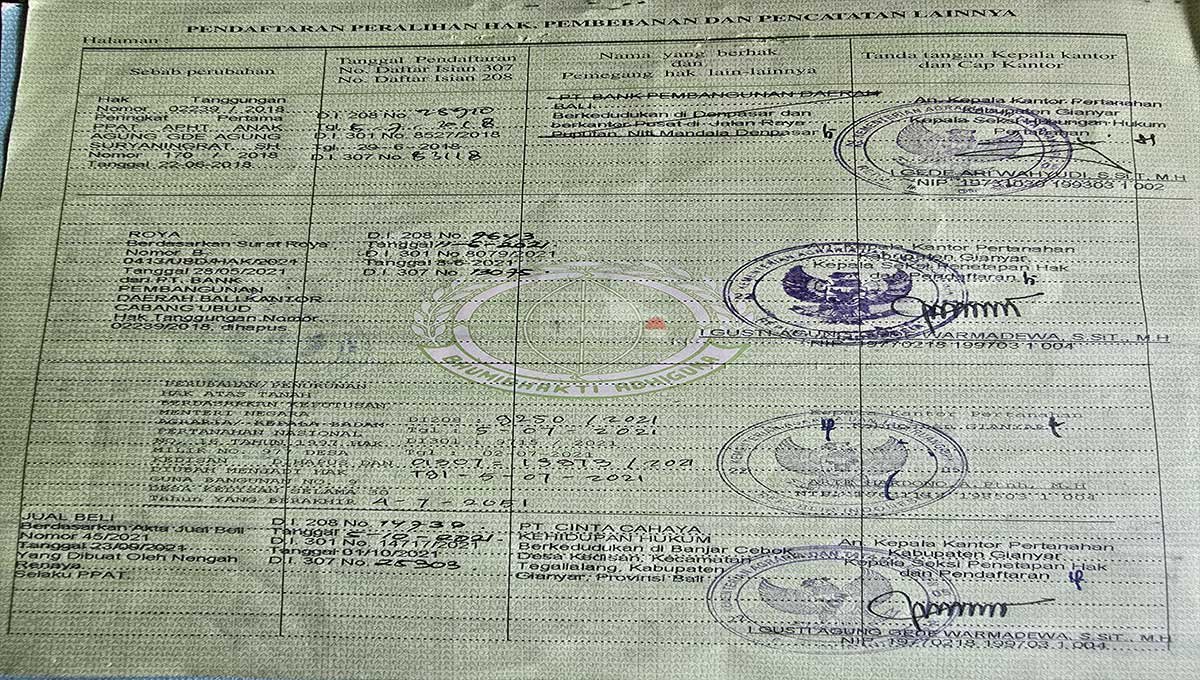 PENDAFTARAN PERALIHAN HAK, PEMBEBANAN DAN PENCATATAN LAINNYA
Halaman :
Sebab perubahan
Tanggal Pendaftaran
No. Daftar Isian 307
No. Daftar Isian 208
Nama yang berhak
dan
Pemegang hak lain-lainnya
Tanda tangan Kepala kantor
dan Cap Kantor
Hak Tanggungan
Nomor 02239 / 2018
Peringkat Pertama
PPAT. APHT. ANAK
AGUNG GDE AGUNG
SURYANINGRAT. SH
Nomor 170 / 2018
Tanggal 22-06-2018
D.I. 208 No.
Tgl
D.I 301 No 8527/2018
Tgl -6-2018
D.I. 307 No.
PT. BANK PEMBANGUNAN DAERAH
BALI
Berkedudukan di Denpasar dan
berkantor Pusat di Jalan Raya
Puputan, Niti Mandala Denpasar
An. Kepala Kantor Pertanahan
Kabupaten Gianyar
Kepala Seksi Hubungan Hukum
Pertanahan
I GEDE ARI WAHYUDI, S.SiT, M.H
NIP. 19731030 199303 1 002
ROYA
Berdasarkan Surat Roya
Nomor B-
0413/UBD/HAK/2021
Tanggal 28/05/2021
dari PT. BANK
PEMBANGUNAN
DAERAH BALI KANTOR
CABANG UBUD
Hak Tanggungan Nomor
02239/2018, dihapus
D.I. 208 No. 9643
Tanggal 11-6-2021
D.I 301 No 8079/2021
Tanggal 8-6-2021
D.I. 307 No. 13075
Kepala Kantor Pertanahan
Kabupaten Gianyar
Kepala Seksi Penetapan Hak
dan Pendaftaran
I GUSTI AGUNG GEDE WARMADEWA, S.SIT., M.H
NIP. 19770218 199703 1 004
BHUMI BHAKTI ADHIGUNA
PERUBAHAN/PENURUNAN
HAK ATAS TANAH
BERDASARKAN KEPUTUSAN
MENTERI NEGARA
AGRARIA/ KEPALA BADAN
PERTANAHAN NASIONAL
NO. 16 TAHUN 1997 HAK
MILIK NO. 97 DESA
KEDISAN DIHAPUS DAN
DIUBAH MENJADI HAK
GUNA BANGUNAN NO. 9
DESA KEDISAN SELAMA 30
Tahun YANG BERAKHIR 4-7-2051
DI208 : 9250 / 2021
Tgl : 5-07-2021
DI301 : / 2021
Tgl : 02-07-2021
DI307 : 13973 / 2021
Tgl : 5-07-2021
Kepala Kantor Pertanahan
GIANYAR
JUAL BELI
Berdasarkan Akta Jual Beli
Nomor 45/2021
Tanggal 23/09/2021
Yang Dibuat Oleh Nengah
Renaya
Selaku PPAT.
D.I. 208 No. 14938
Tanggal 5-10-2021
D.I 301 No 14117/2021
Tanggal 01/10/2021
D.I. 307 No. 25303
PT CINTA CAHAYA
KEHIDUPAN HUKUM
Berkedudukan di Banjar Cebok
Desa Kedisan, Kecamatan
Tegallalang, Kabupaten
Gianyar, Provinsi Bali
An. Kepala Kantor Pertanahan
Kabupaten Gianyar
Kepala Seksi Penetapan Hak
dan Pendaftaran
I GUSTI AGUNG GEDE WARMADEWA, S.SIT., M.H
NIP. 19770218 199703 1 004